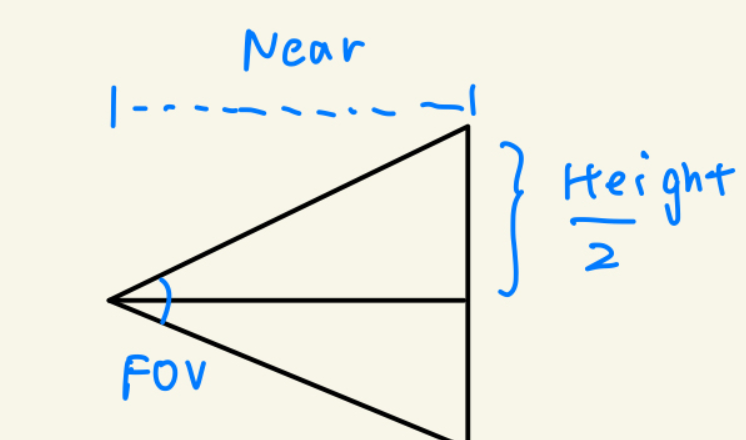 Near
Height
2
FOV